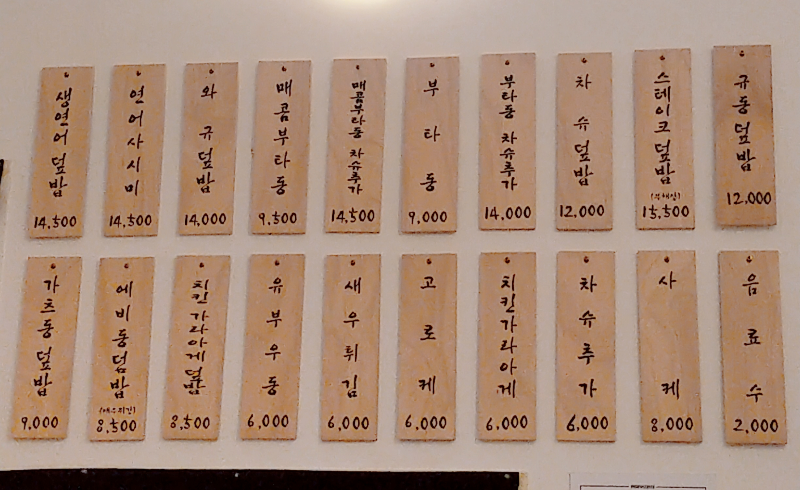 생연어덮밥
14,500
연어사시미
14,500
와규덮밥
14,000
매콤부타동
9,500
매콤부타동 차슈추가
14,500
부타동
9,000
부타동 차슈추가
14,000
차슈덮밥
12,000
스테이크덮밥
15,500
규동덮밥
12,000
가츠동덮밥
9,000
에비동덮밥
8,500
치킨가라아게덮밥
8,500
유부우동
6,000
새우튀김
6,000
고로케
6,000
치킨가라아게
6,000
차슈추가
6,000
사케
8,000
음료수
2,000